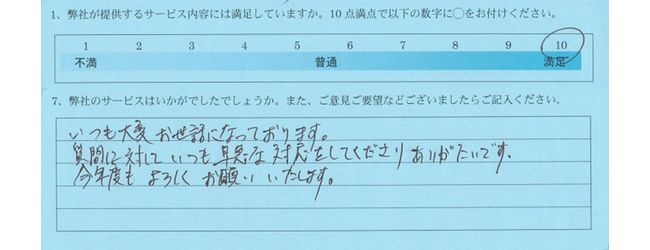 1、弊社が提供するサービス内容には満足していますか。10点満点で以下の数字に◯をお付けください。
1 2 3 4 5 6 7 8 9 10
不満 普通 満足
7、弊社のサービスはいかがでしたでしょうか。また、ご意見ご要望などございましたらご記入ください。
いつも大変お世話になっております。
質問に対していつも早急な対応をしてくださりありがたいです。
今年度もよろしくお願いいたします。